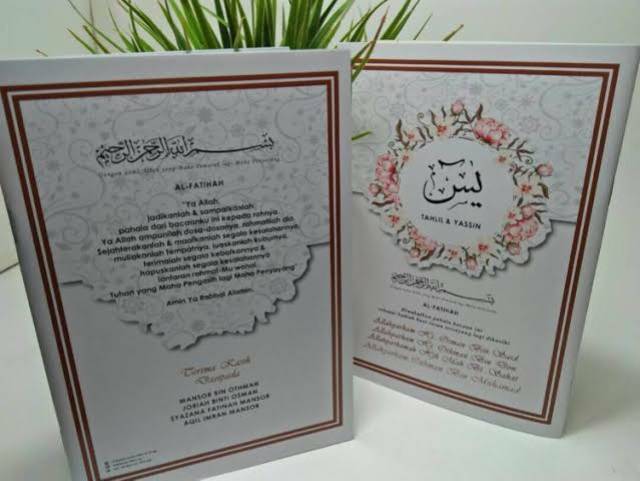 بسم الله الرحمن الرحيم
Dengan nama Allah yang Maha Pemurah lagi Maha Penyayang
AL-FATIHAH
"Ya Allah,
jadikanlah & sampaikanlah
pahala dari bacaanku ini kepada rohnya.
Ya Allah ampunilah dosa-dosanya, rahmatilah dia
Sejahterakanlah & maafkanlah segala kesalahannya,
muliakanlah tempatnya, luaskanlah kuburnya,
terimalah segala kebaikannya &
hapuskanlah segala kesalahannya
lantaran rahmat-Mu wahai
Tuhan yang Maha Pengasih lagi Maha Penyayang"
Amin Ya Rabbal Alamin
Terima Kasih
Daripada
MANSOR BIN OTHMAN
JORIAH BINTI OSMAN
SYAZANA FATIHAH MANSOR
AQIL IMRAN MANSOR
يس
TAHLIL & YASSIN
بسم الله الرحمن الرحيم
AL-FATIHAH
Diwakafkan pahala bacaan ini
Allahyarham Hj. Osman Bin Said
Allahyarham Hj. Othman Bin Don
Allahyarhamah Hjh Mok Bt. Sahar
Allahyarham Othman Bin Mohamad